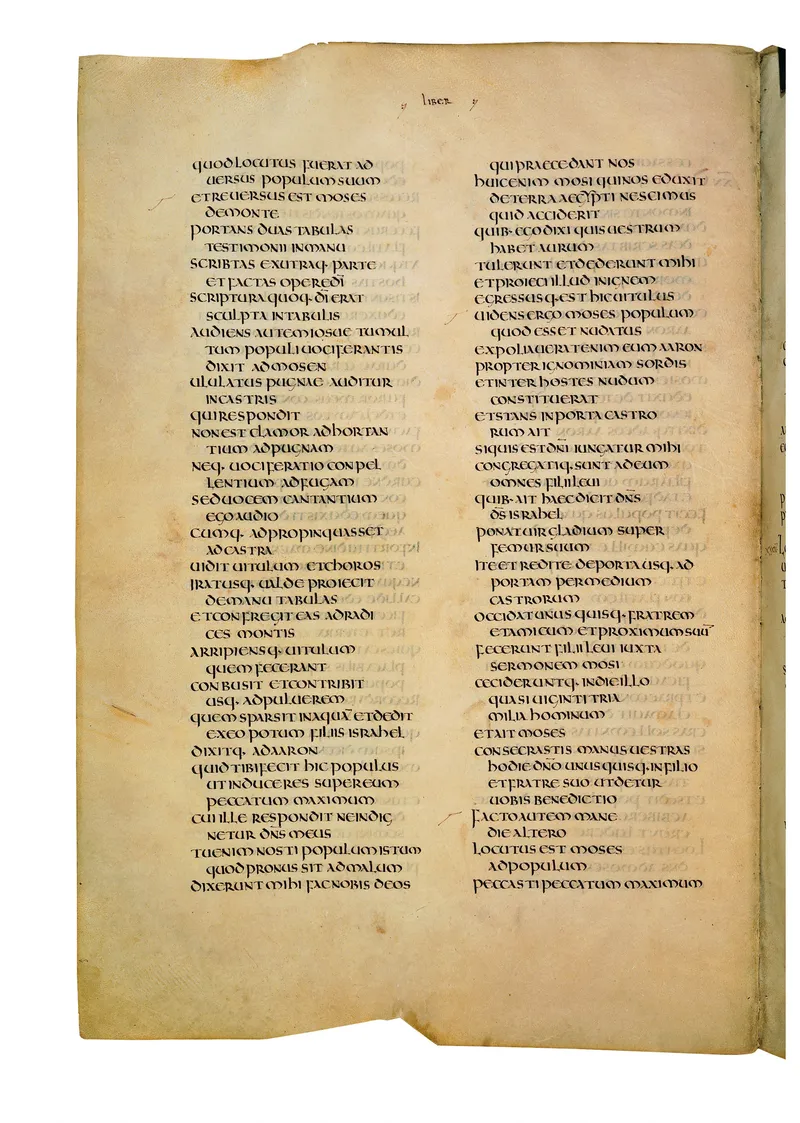 liber
quod locutus fuerat ad
uersus populum suum
et reuersus est moses
de monte
portans duas tabulas
testimonii in manu
scribtas ex utraq· parte
et factas opere dī
scriptura quoq· dī erat
sculpta in tabulis
audiens autem iosue tumul
tum populi uociferantis
dixit ad mosen
ululatus pugnae auditur
in castris
qui respondit
non est clamor adhortan
tium ad pugnam
neq· uociferatio conpel
lentium ad fugam
sed uocem cantantium
ego audio
cumq· adpropinquasset
ad castra
uidit uitulum et choros
iratusq· ualde proiecit
de manu tabulas
et confregit eas ad radi
ces montis
arripiensq· uitulum
quem fecerant
conbusit et contribit
usq· ad puluerem
quem sparsit in aquā et dedit
ex eo potum filiis israhel
dixitq· ad aaron
quid tibi fecit hic populus
ut induceres super eum
peccatum maximum
cui ille respondit ne indig
netur dn̄s meus
tu enim nosti populum istum
quod pronus sit ad malum
dixerunt mihi fac nobis deos
qui praecedant nos
huic enim mosi qui nos eduxit
de terra aegypti nescimus
quid acciderit
quib· ego dixi quis uestrum
habet aurum
tulerunt et dederunt mihi
et proieci illud in ignem
egressusq· est hic uitulus
uidens ergo moses populum
quod esset nudatus
expoliauerat enim eum aaron
propter ignominiam sordis
et inter hostes nudum
constituerat
et stans in porta castro
rum ait
si quis est dn̄i iungatur mihi
congregatiq· sunt ad eum
omnes filii leui
quib· ait haec dicit dn̄s
d̄s israhel
ponat uir gladium super
femur suum
ite et redite de porta usq· ad
portam per medium
castrorum
occidat unus quisq· fratrem
et amicum et proximum suū
fecerunt filii leui iuxta
sermonem mosi
cecideruntq· in die illo
quasi uiginti tria
milia hominum
et ait moses
consecrastis manus uestras
hodie dn̄o unus quisq· in filio
et fratre suo ut detur
uobis benedictio
facto autem mane
die altero
locutus est moses
ad populum
peccasti peccatum maximum